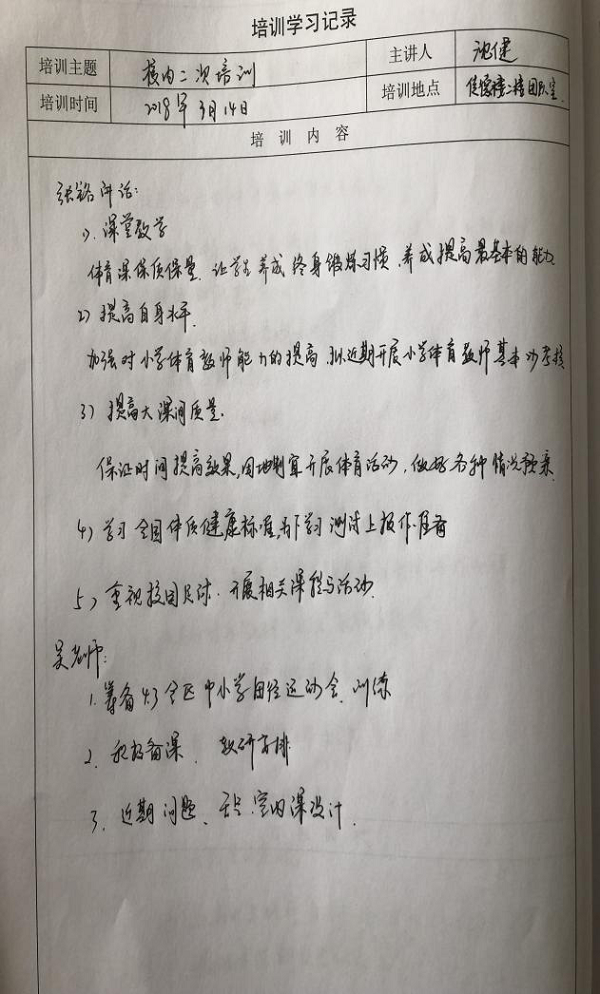 培训学习记录
培训主题 校内二次培训 主讲人 沈健
培训时间 2018年3月14日 培训地点 楼二楼团队室
培训内容
张铭讲话:
1). 课堂教学
体育课保质保量. 让学生养成终身锻炼习惯、养成提高最基本的能力.
2) 提高自身水平.
加强对小学体育教师能力的提高. 拟近期开展小学体育教师基本功考核
3) 提高大课间质量.
保证时间提高效果,因地制宜开展体育活动, 做好各种情况预案.
4) 学习全国体质健康标准, 学习测试上报作
5) 重视校园足球. 开展相关课程与活动.
吴老师:
1. 筹备4.3全区中小学田径运动会、训练
2. 积极备课、教研安排
3. 近期问题、室内课设计.